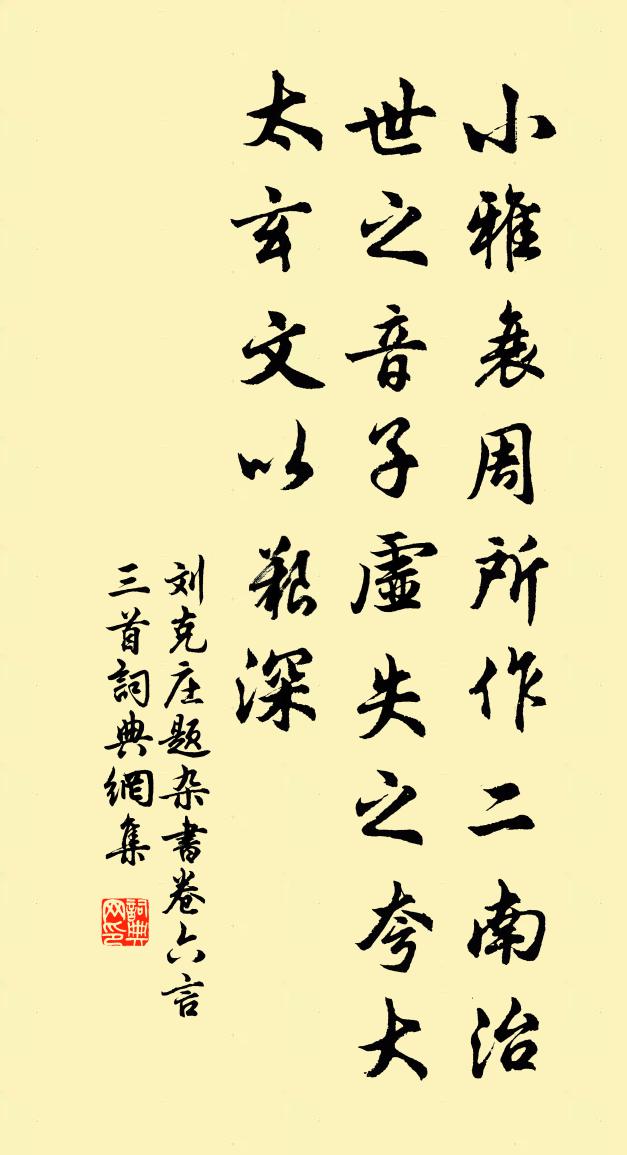 小雅衰周所作二南治
世之音子虛失之夸大
太玄文以艱深
刘克庄題杂書卷六言
三首詞典網集
詞典网印